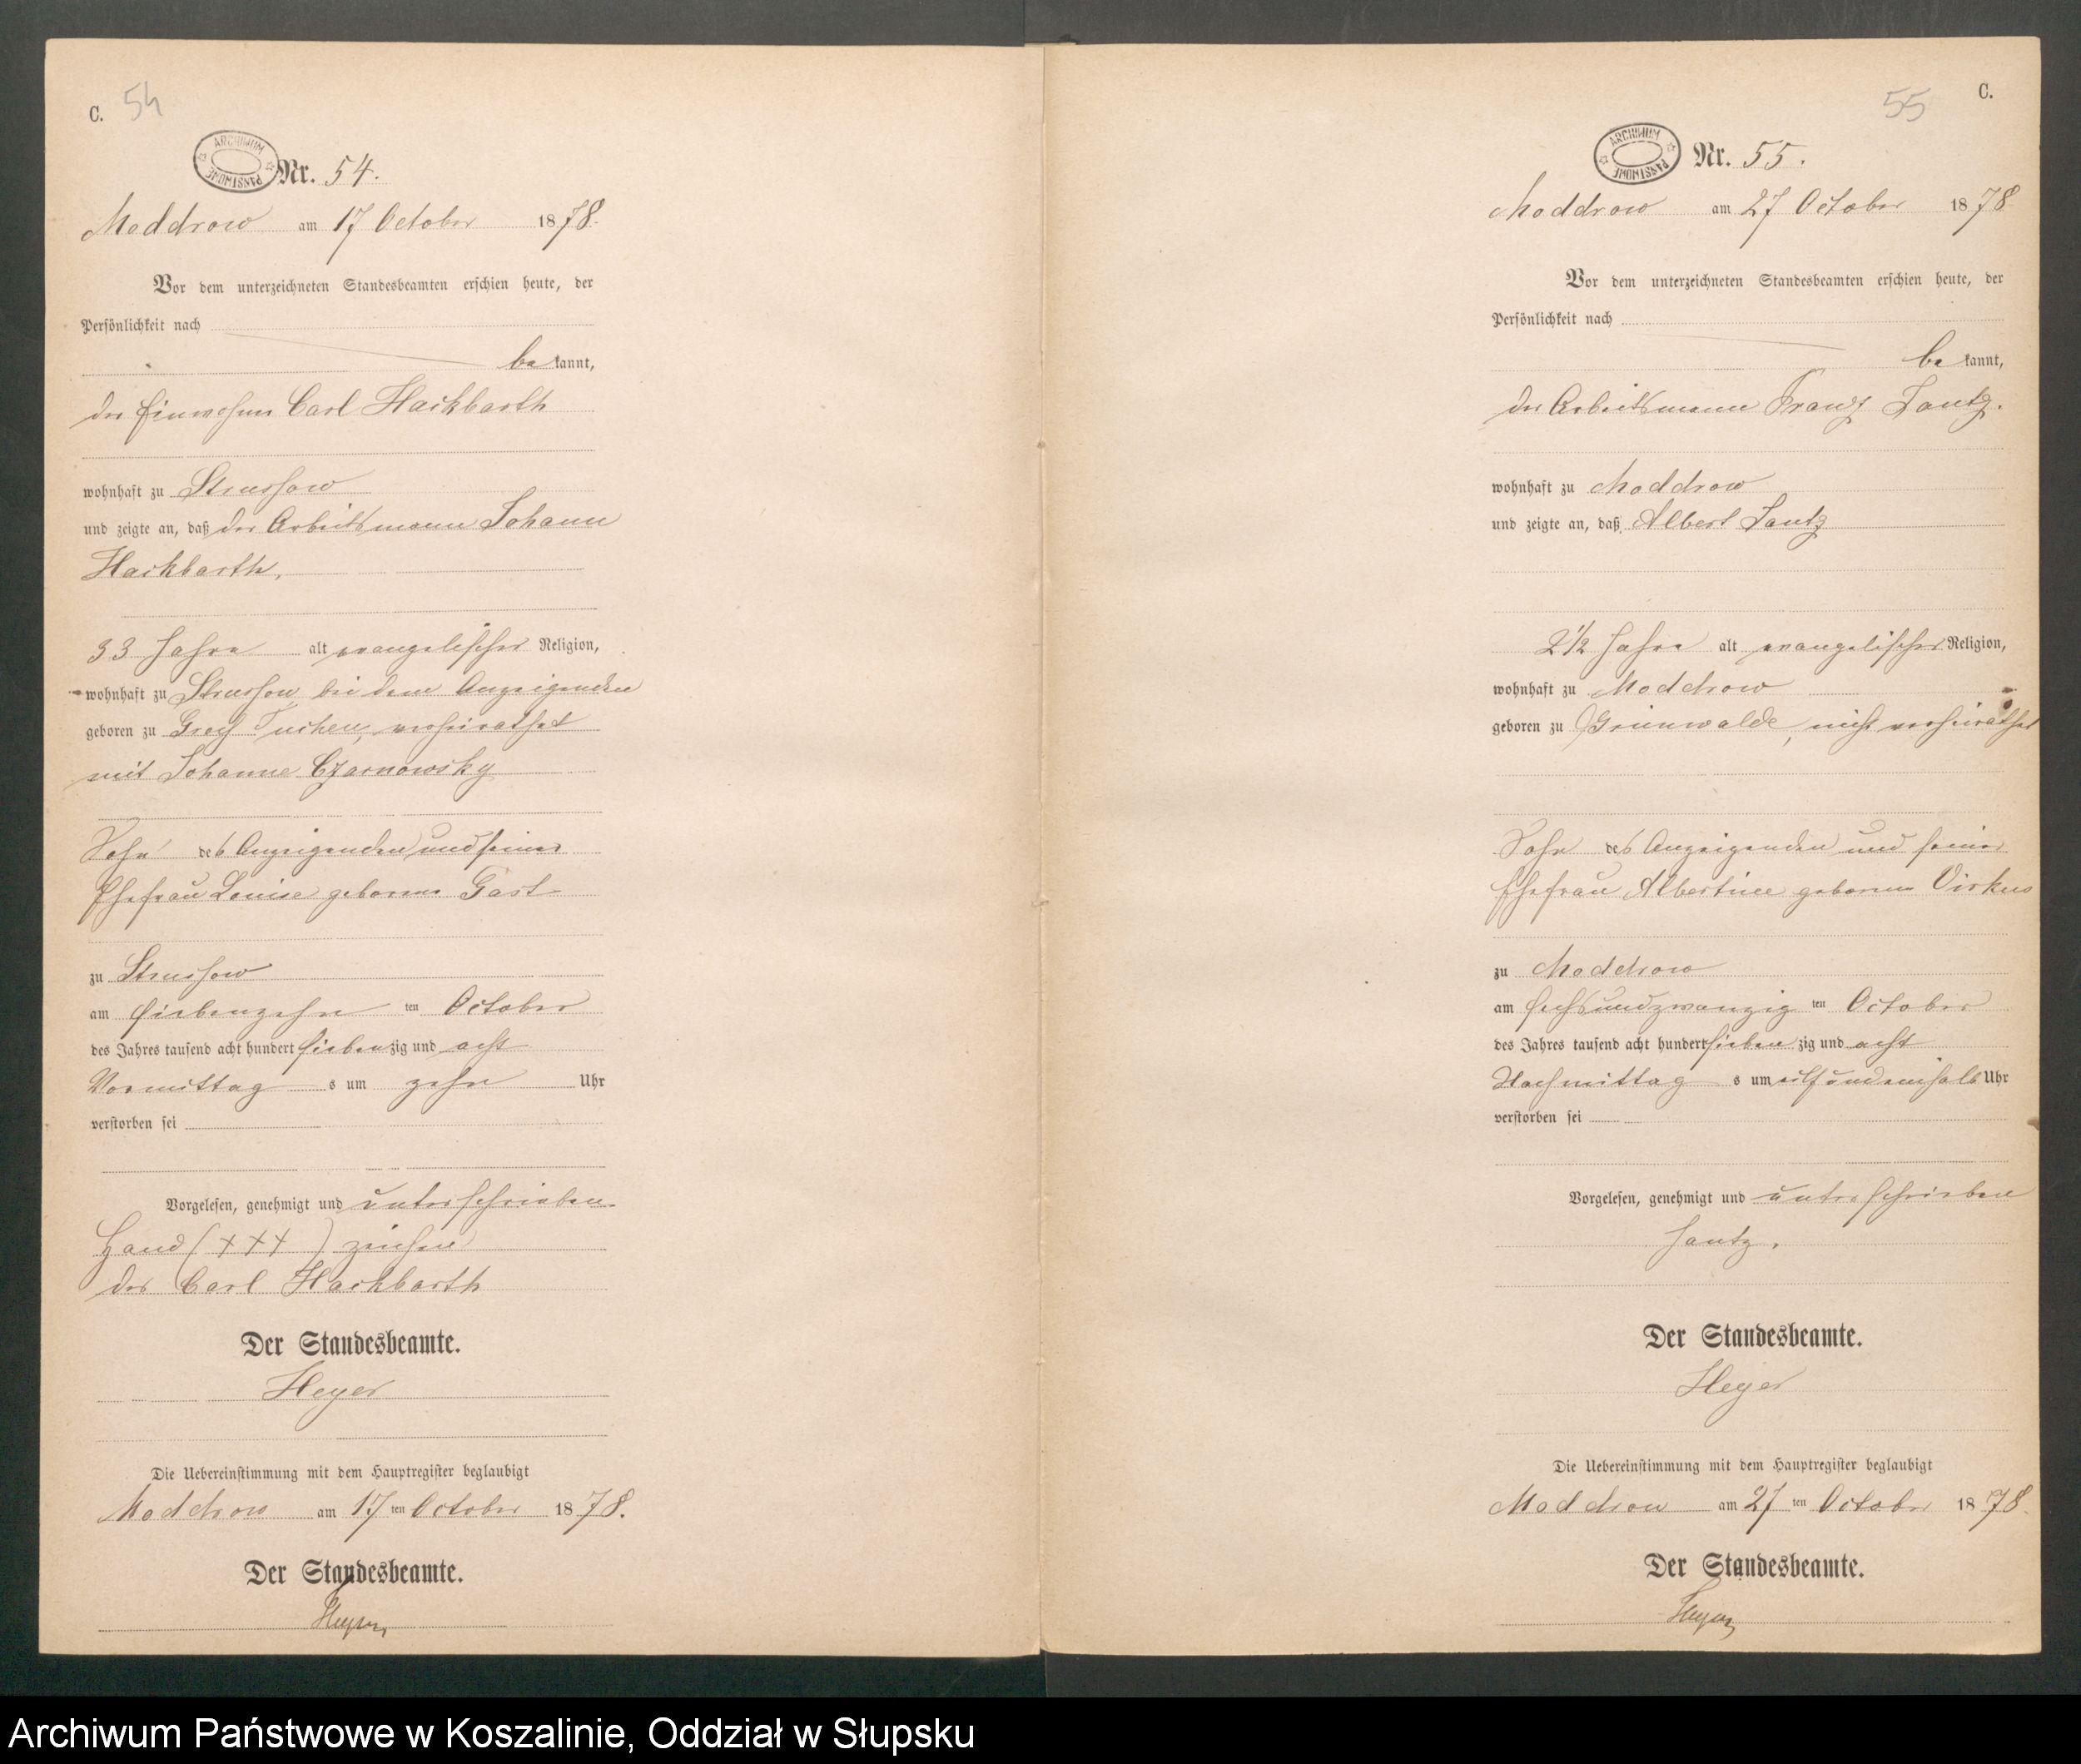 C. 54
ARCHIWUM PAŃSTWOWE
Nr. 54.
Moddrow am 17 October 1878.
Vor dem unterzeichneten Standesbeamten erschien heute, der
Persönlichkeit nach
be kannt,
der Einwohner Carl Hackbarth
wohnhaft zu Strussow
und zeigte an, daß der Arbeitsmann Johann
Hackbarth,
33 Jahre alt evangelischer Religion,
wohnhaft zu Strussow, bei dem Anzeigenden
geboren zu Groß Tuchen, verheirathet
mit Johanne Czarnowsky
Sohn des Anzeigenden und seiner
Ehefrau Louise geborene Gast
zu Strussow
am siebenzehn ten October
des Jahres tausend acht hundert siebenzig und acht
Vormittag s um zehn Uhr
verstorben sei
Vorgelesen, genehmigt und unterschrieben
Hand (+++) zeichen
des Carl Hackbarth
Der Standesbeamte.
Heyer
Die Uebereinstimmung mit dem Hauptregister beglaubigt
Moddrow am 17 ten October 1878.
Der Standesbeamte.
Heyer
55 C.
ARCHIWUM PAŃSTWOWE
Nr. 55.
Moddrow am 27 October 1878
Vor dem unterzeichneten Standesbeamten erschien heute, der
Persönlichkeit nach
be kannt,
der Arbeitsmann Franz Jantz.
wohnhaft zu Moddrow
und zeigte an, daß Albert Jantz
2 1/2 Jahre alt evangelischer Religion,
wohnhaft zu Moddrow
geboren zu Grünwalde, nicht verheirathet
Sohn des Anzeigenden und seiner
Ehefrau Albertine geborene Virkus
zu Moddrow
am sechsundzwanzig ten October
des Jahres tausend acht hundert sieben zig und acht
Nachmittag s um elfundeinhalb Uhr
verstorben sei
Vorgelesen, genehmigt und unterschrieben
Jantz.
Der Standesbeamte.
Heyer
Die Uebereinstimmung mit dem Hauptregister beglaubigt
Moddrow am 27 ten October 1878.
Der Standesbeamte.
Heyer
Archiwum Państwowe w Koszalinie, Oddział w Słupsku